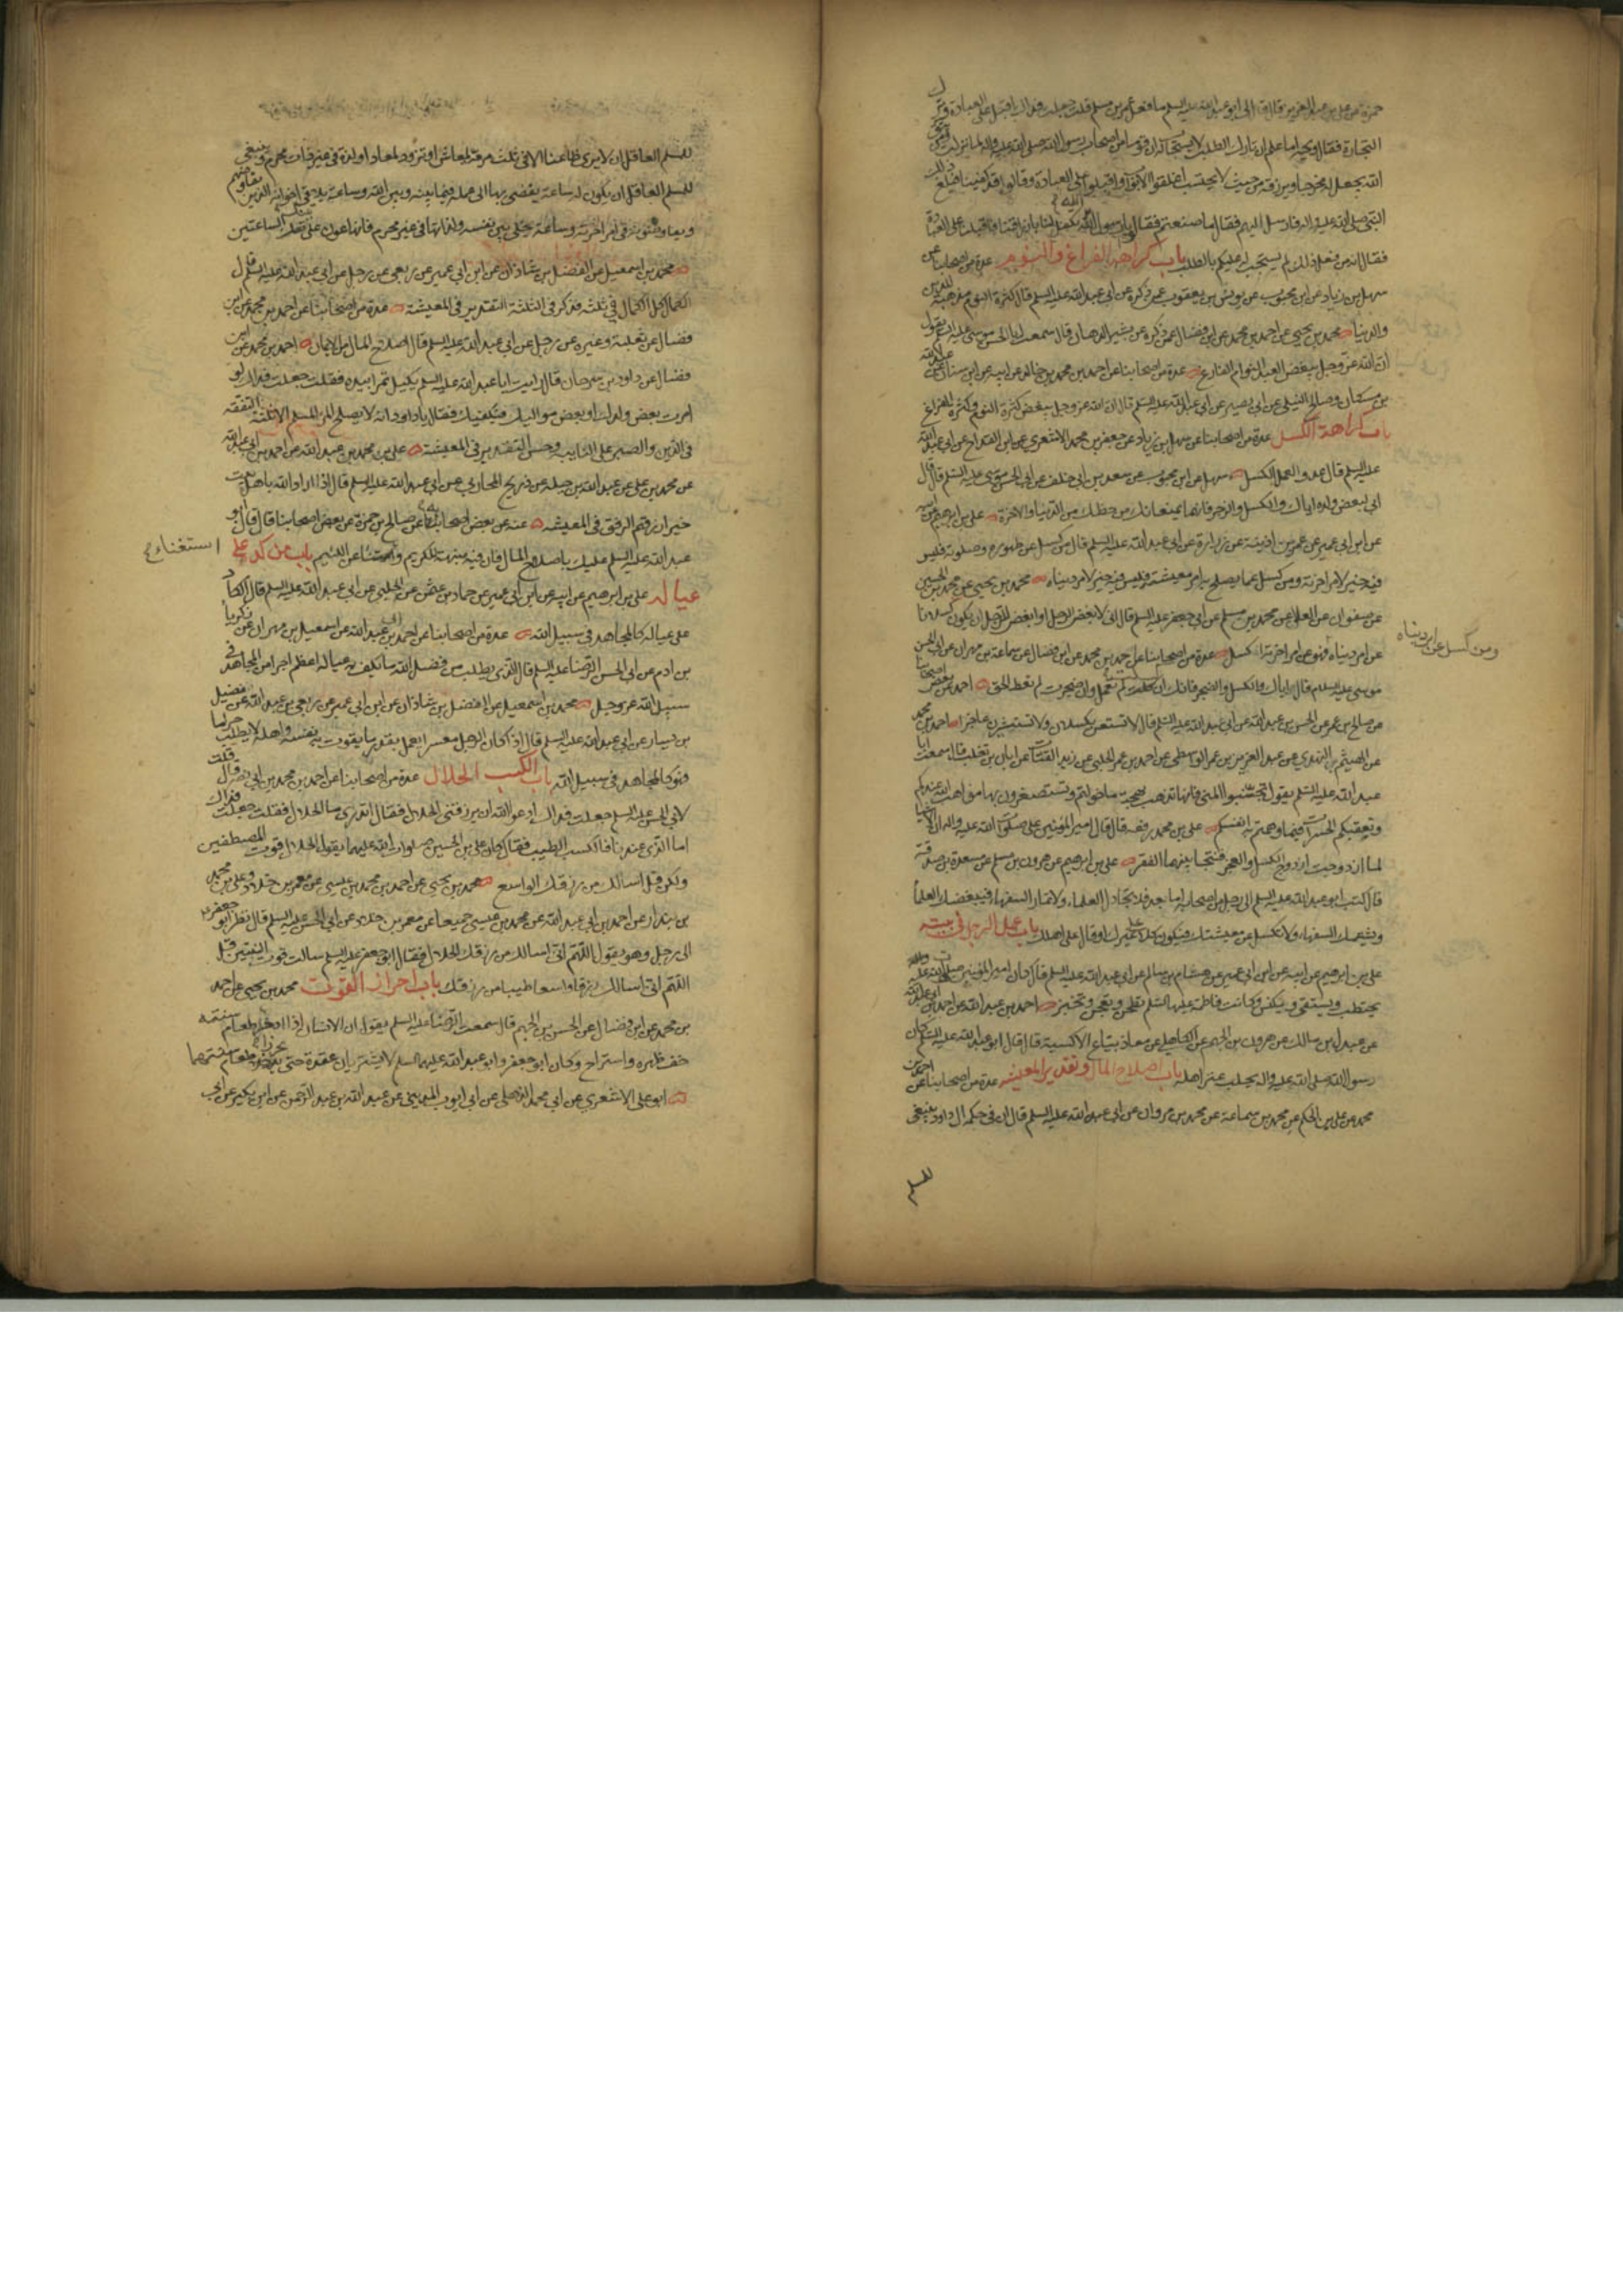 حمزة عن علي بن عبد العزيز قال قال لي ابو عبد الله عليه السلم ما فعل عمر بن مسلم قلت جعلت فداك اقبل على العبادة وترك
التجارة فقال ويحه اما علم ان تارك الطلب لا يستجاب له ان قوما من اصحاب رسول الله صلى الله عليه واله لما نزلت ومن يتق
الله يجعل له مخرجا ويرزقه من حيث لا يحتسب اغلقوا الابواب واقبلوا على العبادة وقالوا قد كفينا فبلغ ذلك
النبي صلى الله عليه واله فارسل اليهم فقال ما صنعتم فقالوا يا رسول الله تكفل لنا بارزاقنا فاقبلنا على العبادة
فقال انه من فعل ذلك لم يستجب له عليكم بالطلب باب كراهية الفراغ والنوم عدة من اصحابنا عن
سهل بن زياد عن ابن محبوب عن يونس بن يعقوب عمن ذكره عن ابي عبد الله عليه السلم قال كثرة النوم مذهبة للدين
والدنيا محمد بن يحيى عن احمد بن محمد عن ابن فضال عمن ذكره عن بشير الدهان قال سمعت ابا الحسن موسى عليه السلم يقول
ان الله عز وجل يبغض العبد النوام الفارغ عدة من اصحابنا عن احمد بن محمد بن خالد عن ابيه عن ابن سنان عن عبد الله
بن مسكان وصالح النيلي عن ابي بصير عن ابي عبد الله عليه السلم قال ان الله عز وجل يبغض كثرة النوم وكثرة الفراغ
باب كراهة الكسل عدة من اصحابنا عن سهل بن زياد عن جعفر بن محمد الاشعري عن ابن القداح عن ابي عبد الله
عليه السلم قال عدو العمل الكسل سهل عن ابن محبوب عن سعد بن ابي خلف عن ابي الحسن موسى عليه السلم قال قال
ابي لبعض ولده اياك والكسل والضجر فانهما يمنعانك من حظك من الدنيا والاخرة علي بن ابرهيم عن ابيه
عن ابن ابي عمير عن عمر بن اذينة عن زرارة عن ابي عبد الله عليه السلم قال من كسل عن طهوره وصلوته فليس
فيه خير لامر اخرته ومن كسل عما يصلح به امر معيشته فليس فيه خير لامر دنياه محمد بن يحيى عن محمد بن الحسين
عن صفوان عن العلاء عن محمد بن مسلم عن ابي جعفر عليه السلم قال اني لابغض الرجل او ابغض للرجل ان يكون كسلانا
ومن كسل عن امر دنياه
عن امر دنياه فهو عن امر اخرته اكسل عدة من اصحابنا عن احمد بن محمد عن ابن فضال عن سماعة بن مهران عن ابي الحسن
موسى عليه السلام قال اياك والكسل والضجر فانك ان كسلت لم تعمل وان ضجرت لم تعط الحق احمد عن بعض اصحابنا
عن صالح بن عمر عن الحسن بن عبد الله عن ابي عبد الله عليه السلم قال لا تستعن بكسلان ولا تستشيرن عاجزا احمد بن محمد
عن الهيثم النهدي عن عبد العزيز بن عمر الواسطي عن احمد بن عمر الحلبي عن زيد القتات عن ابان بن تغلب قال سمعت ابا
عبد الله عليه السلم يقول تجنبوا المنى فانها تذهب بهجة ما خولتم وتستصغرون بها مواهب الله عندكم
وتعقبكم الحسرات فيما وهمتم به انفسكم علي بن محمد رفعه قال قال امير المؤمنين علي صلوات الله عليه واله ان الاشيا
لما ازدوجت ازدوج الكسل والعجز فنتجا بينهما الفقر علي بن ابرهيم عن هرون بن مسلم عن مسعدة بن صدقة
قال كتب ابو عبد الله عليه السلم الى رجل من اصحابه اما بعد فلا تجادل العلماء ولا تمار السفهاء فيبغضك العلماء
ويشتمك السفهاء ولا تكسل عن معيشتك فتكون كلا على غيرك او قال على اهلك باب عمل الرجل في بيته
علي بن ابرهيم عن ابيه عن ابن ابي عمير عن هشام بن سالم عن ابي عبد الله عليه السلم قال كان امير المؤمنين صلوات الله عليه واله
يحتطب ويستقي ويكنس وكانت فاطمة عليها السلم تطحن وتعجن وتخبز احمد بن عبد الله عن احمد بن ابي عبد الله
عن عبدل بن مالك عن هرون بن الجهم عن الكاهلي عن معاذ بياع الاكسية قال قال ابو عبد الله عليه السلم كان
رسول الله صلى الله عليه واله يحلب عنز اهله باب اصلاح المال وتقدير المعيشه عدة من اصحابنا عن احمد بن
محمد عن علي بن الحكم عن محمد بن سماعة عن محمد بن مروان عن ابي عبد الله عليه السلم قال ان في حكمة ال داود ينبغي
للمسلم العاقل ان لا يرى ظاعنا الا في ثلث مرمة لمعاش او تزود لمعاد او لذة في غير ذات محرم وينبغي
للمسلم العاقل ان يكون له ساعة يفضي بها الى عمله فيما بينه وبين الله وساعة يلاقي اخوانه الذين يفاوضهم
ويفاوضونه في امر اخرته وساعة يخلي بين نفسه ولذاتها في غير محرم فانها عون على تلك الساعتين
محمد بن اسمعيل عن الفضل بن شاذان عن ابن ابي عمير عن ربعي عن رجل عن ابي عبد الله عليه السلم قال
الكمال كل الكمال في ثلثه فذكر في الثلثة التقدير في المعيشة عدة من اصحابنا عن احمد بن محمد عن ابن
فضال عن ثعلبة وغيره عن رجل عن ابي عبد الله عليه السلم قال اصلاح المال من الايمان احمد بن محمد عن ابن
فضال عن داود بن سرحان قال رايت ابا عبد الله عليه السلم يكيل تمرا بيده فقلت جعلت فداك لو
امرت بعض ولدك او بعض مواليك فيكفيك فقال يا داود انه لا يصلح المرء المسلم الا ثلثة التفقه
في الدين والصبر على النائبة وحسن التقدير في المعيشة علي بن محمد بن عبد الله عن احمد بن ابي عبد الله
عن محمد بن علي عن عبد الله بن جبلة عن ذريح المحاربي عن ابي عبد الله عليه السلم قال اذا اراد الله باهل بيت
خيرا رزقهم الرفق في المعيشه عنه عن بعض اصحابنا عن صالح بن حمزة عن بعض اصحابنا قال قال ابو
عبد الله عليه السلم عليك باصلاح المال فان فيه منبهة للكريم واستغناء عن اللئيم باب من كد على
استغناء
عياله علي بن ابرهيم عن ابيه عن ابن ابي عمير عن حماد بن عثمن عن الحلبي عن ابي عبد الله عليه السلم قال الكاد
على عياله كالمجاهد في سبيل الله عدة من اصحابنا عن احمد بن ابي عبد الله عن اسمعيل بن مهران عن زكريا
بن ادم عن ابي الحسن الرضا عليه السلم قال الذي يطلب من فضل الله ما يكف به عياله اعظم اجرا من المجاهد في
سبيل الله عز وجل محمد بن اسمعيل عن الفضل بن شاذان عن ابن ابي عمير عن ربعي بن عبد الله عن فضيل
بن يسار عن ابي عبد الله عليه السلم قال اذا كان الرجل معسرا يعمل بقدر ما يقوت به نفسه واهله لا يطلب حراما
فهو كالمجاهد في سبيل الله باب الكسب الحلال عدة من اصحابنا عن احمد بن محمد بن ابي نصر قال قلت
لابي الحسن عليه السلم جعلت فداك ادعو الله ان يرزقني الحلال فقال اتدري ما الحلال فقلت جعلت فداك
اما الذي عندنا فالكسب الطيب فقال كان علي بن الحسين صلوات الله عليهما يقول الحلال قوت المصطفين
ولكن قل اسالك من رزقك الواسع محمد بن يحيى عن احمد بن محمد بن عيسى عن معمر بن خلاد وعلي بن محمد
بن بندار عن احمد بن ابي عبد الله عن محمد بن عيسى جميعا عن معمر بن خلاد عن ابي الحسن عليه السلم قال نظر ابو جعفر
الى رجل وهو يقول اللهم اني اسالك من رزقك الحلال فقال ابو جعفر عليه السلم سالت قوت النبيين قل
اللهم اني اسالك رزقا واسعا طيبا من رزقك باب احراز القوت محمد بن يحيى عن احمد
بن محمد عن ابن فضال عن الحسن بن الجهم قال سمعت الرضا عليه السلم يقول ان الانسان اذا ادخر طعام سنته
خف ظهره واستراح وكان ابو جعفر وابو عبد الله عليهما السلم لا يشتريان عقدة حتى يحرزا طعام سنتهما
ابو علي الاشعري عن ابي محمد الذهلي عن ابي ايوب المديني عن عبد الله بن عبد الرحمن عن ابن بكير عن ابي